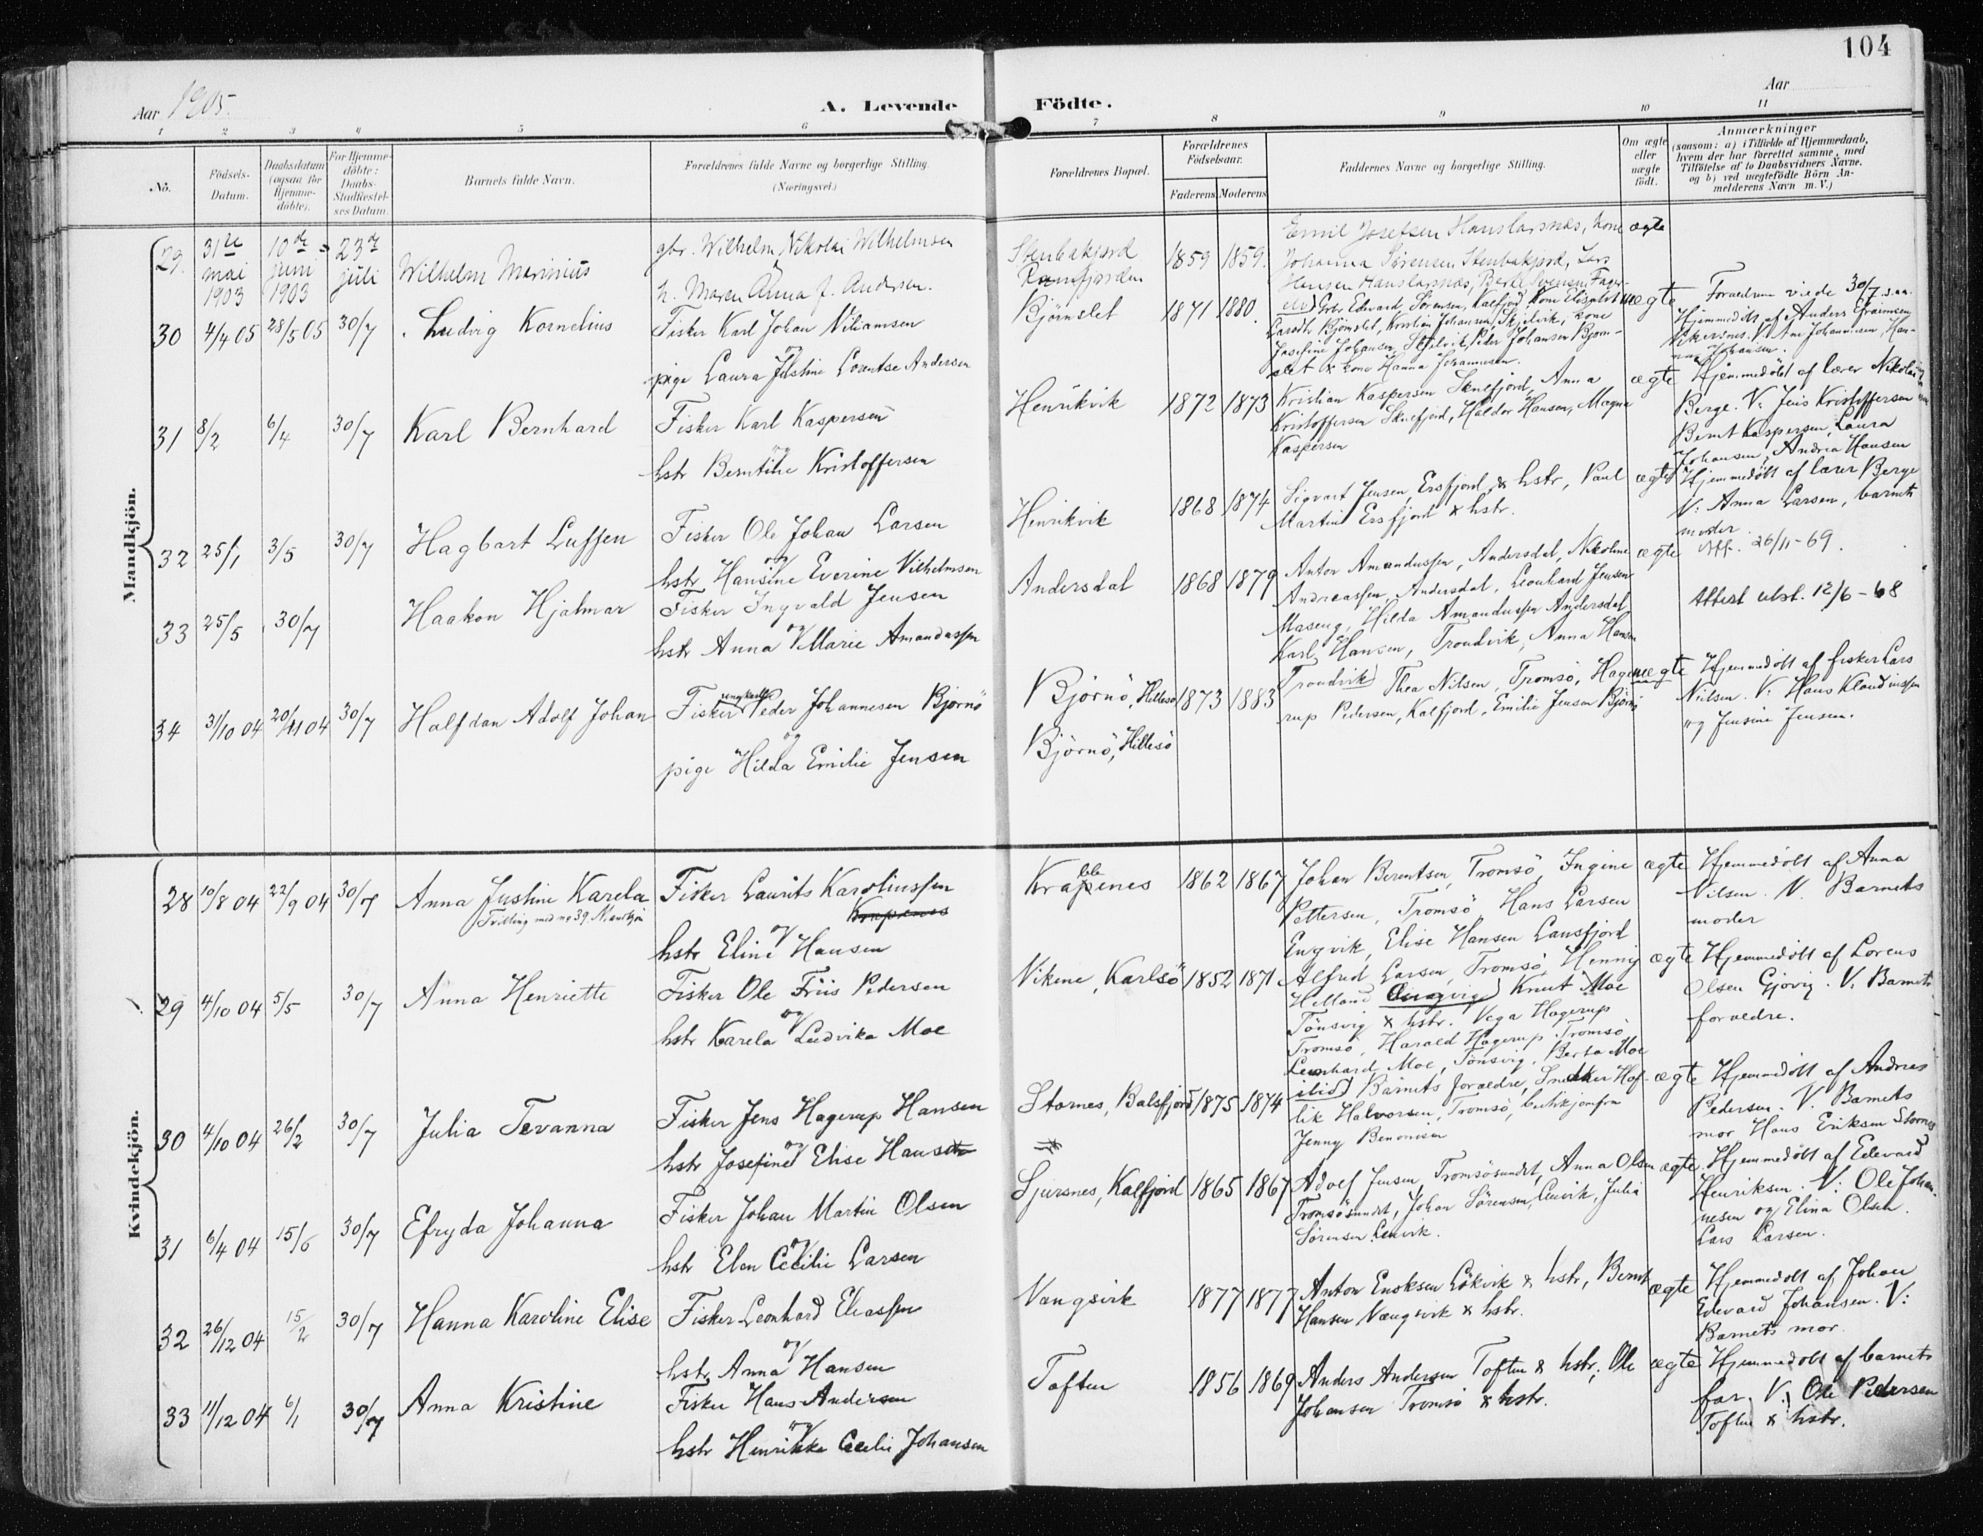 104
Aar 1905.
A. Levende Födte.
Aar
1 2 3 4 5 6 7 8 9 10 11
No.
Födsels-
Datum.
Daabsdatum
(ogsaa for
Hjemme-
döbte).
For Hjemme-
döbte:
Daabs-
Stadfæstel-
ses Datum.
Barnets fulde Navn.
Forældrenes fulde Navne og borgerlige Stilling.
(Næringsvei.)
Forældrenes Bopæl.
Forældrenes
Födselsaar.
Faderens Moderens
Faddernes Navne og borgerlige Stilling.
Om ægte
eller
uægte
födt.
Anmærkninger
(saasom: a) i Tilfælde af Hjemmedaab,
hvem der har forrettet samme, med
Tilföielse af to Daabsvidners Navne.
og b) ved uægtefödte Börn An-
melderens Navn m. V.)
Mandkjön.
29.
31te
mai
1903
10de
juni
1903
23de
juli
Wilhelm Marinius
gbr. Wilhelm Nikolai Wilhelmsen
h. Maren Anna f. Andersen.
Stenbakjord
Ramfjorden
1859 1859.
Emil Josefsen Hanslarsnæs, kone
Johanna Sörensen Stenbakjord, Lars
Hansen Hanslarsnæs, Berit Svensen Fager-
ægte
30 4/4 05 28/5 05 30/7
Ludvig Kornelius
Fisker Karl Johan Viliamsen
og
pige Laura Justine Lorentse Andersen
Björnslet
1871 1880
Gbr. Edvard Sörensen, Kalfjord, kone
Larsdtr Björnslet, Kristian Johansen, Skjelvik, kone
Josefine Johansen, Skjelvik, Peder Johansen Björn-
slet & kone Hanna Johannesen.
uægte
Forældrene viede 30/7 s.aa.
Hjemmedöbt af Anders
Johansen.
31 8/2 6/4 30/7
Karl Bernhard
Fisker Karl Kaspersen
og
hstr Berntine Kristoffersen
Henrikvik
1872 1873
Kristian Kaspersen Skulfjord, Anna
Kristoffersen Skulfjord, Haldor Hansen, Magna
Kaspersen
ægte
Hjemmedöbt af lærer Nikolai
Berge. V: Jens Kristoffersen
Bernt Kaspersen, Laura
Johansen, Andrea Hansen
32 25/1 3/5 30/7
Hagbart Luffen
Fisker Ole Johan Larsen
og
hstr Hansine Everine Vilhelmsen
Henrikvik
1868 1874
Sigvart Jensen, Ersfjord, & hstr, Paul
Martin Ersfjord & hstr.
ægte
Hjemmedöbt af lærer Berge
V: Anna Larsen, barnets
moder
Att. 26/11-69.
33 25/5 30/7
Haakon Hjalmar
Fisker Ingvald Jensen
og
hstr Anna Marie Amandussen
Andersdal
1868 1879
Anton Amandussen, Andersdal, Nikoline
Andreassen, Andersdal, Leonhard Jensen
Maseng, Hilda Amandussen Andersdal
Karl Hansen, Trondvik, Anna Hansen
Trondvik
ægte
Attest utst. 12/6-68
34 31/10 04 20/11 04 30/7
Halfdan Adolf Johan
ungkarl
Fisker Peder Johannesen Björnö
og
pige Hilda Emilie Jensen
Björnö, Hillesö
Björnö, Hillesö
1873 1883
Thea Nilsen, Tromsö, Hage-
rup Pedersen, Kalfjord, Emilie Jensen Björnö
uægte
Hjemmedöbt af fisker Lars
Nilsen. V: Hans Klaudiussen
og Jensine Jensen.
Kvindekjön.
28 10/8 04 22/9 04 30/7
Anna Justine Karela
Tvilling med no 39 Mandkjön
Fisker Laurits Karoliussen
Krapenes
og
hstr Eline Hansen
Krabbenes
1862 1867
Johan Berntsen, Tromsö, Ingine
Pettersen, Tromsö, Hans Larsen
Engvik, Elise Hansen Lansfjord
ægte
Hjemmedöbt af Anna
Nilsen. V. Barnets
moder
29 4/10 04 5/5 30/7
Anna Henriette
Fisker Ole Friis Pedersen
og
hstr Karela Ludvika Moe
Vikene, Karlsö
1852 1871
Alfred Larsen, Tromsö, Henny
Helland, Knut Moe
Tönsvig & hstr. Vega Hagerup
Tromsö, Harald Hagerup Tromsö
Leonhard Moe, Tönsvig, Berta Moe
ægte
Hjemmedöbt af Lorens
Olsen Gjövig. V: Barnets
forældre.
30 4/10 04 26/2 30/7
Julia Tevanna
Fisker Jens Hagerup Hansen
og
hstr Josefine Elise Hansen
Stornes, Balsfjord
1875 1874
Barnets forældre, Snedker Hof-
lik Halvorsen, Tromsö, butikjomfru
Jenny Benonisen
ægte
Hjemmedöbt af Andreas
Pedersen. V. Barnets
mor Hans Eriksen Stornes
31 6/4 04 15/6 30/7
Efryda Johanna
Fisker Johan Martin Olsen
og
hstr Elen Cecilie Larsen
Sjursnes, Kalfjord
1865 1867
Adolf Jensen, Tromsösundet, Anna Olsen
Tromsösundet, Johan Sörensen, Lenvik, Julia
Sörensen Lenvik.
ægte
Hjemmedöbt af Edevard
Henriksen. V: Ole Johan-
nesen og Elina Olsen.
Lars Larsen.
32 26/12 04 15/2 30/7
Hanna Karoline Elise
Fisker Leonhard Eliassen
og
hstr Anna Hansen
Vangsvik
1877 1877
Anton Enoksen Lökvik & hstr, Bernt
Hansen Vængsvik & hstr.
ægte
Hjemmedöbt af Johan
Edevard Johansen. V:
Barnets mor.
33 11/12 04 6/1 30/7
Anna Kristine
Fisker Hans Andersen
og
hstr Henrikke Cecilie Johansen
Toften
1856 1869
Anders Andersen Toften & hstr, Ole
Johansen Tromsö & hstr.
ægte
Hjemmedöbt af barnets
far. V. Ole Pedersen
Toften & hstr.